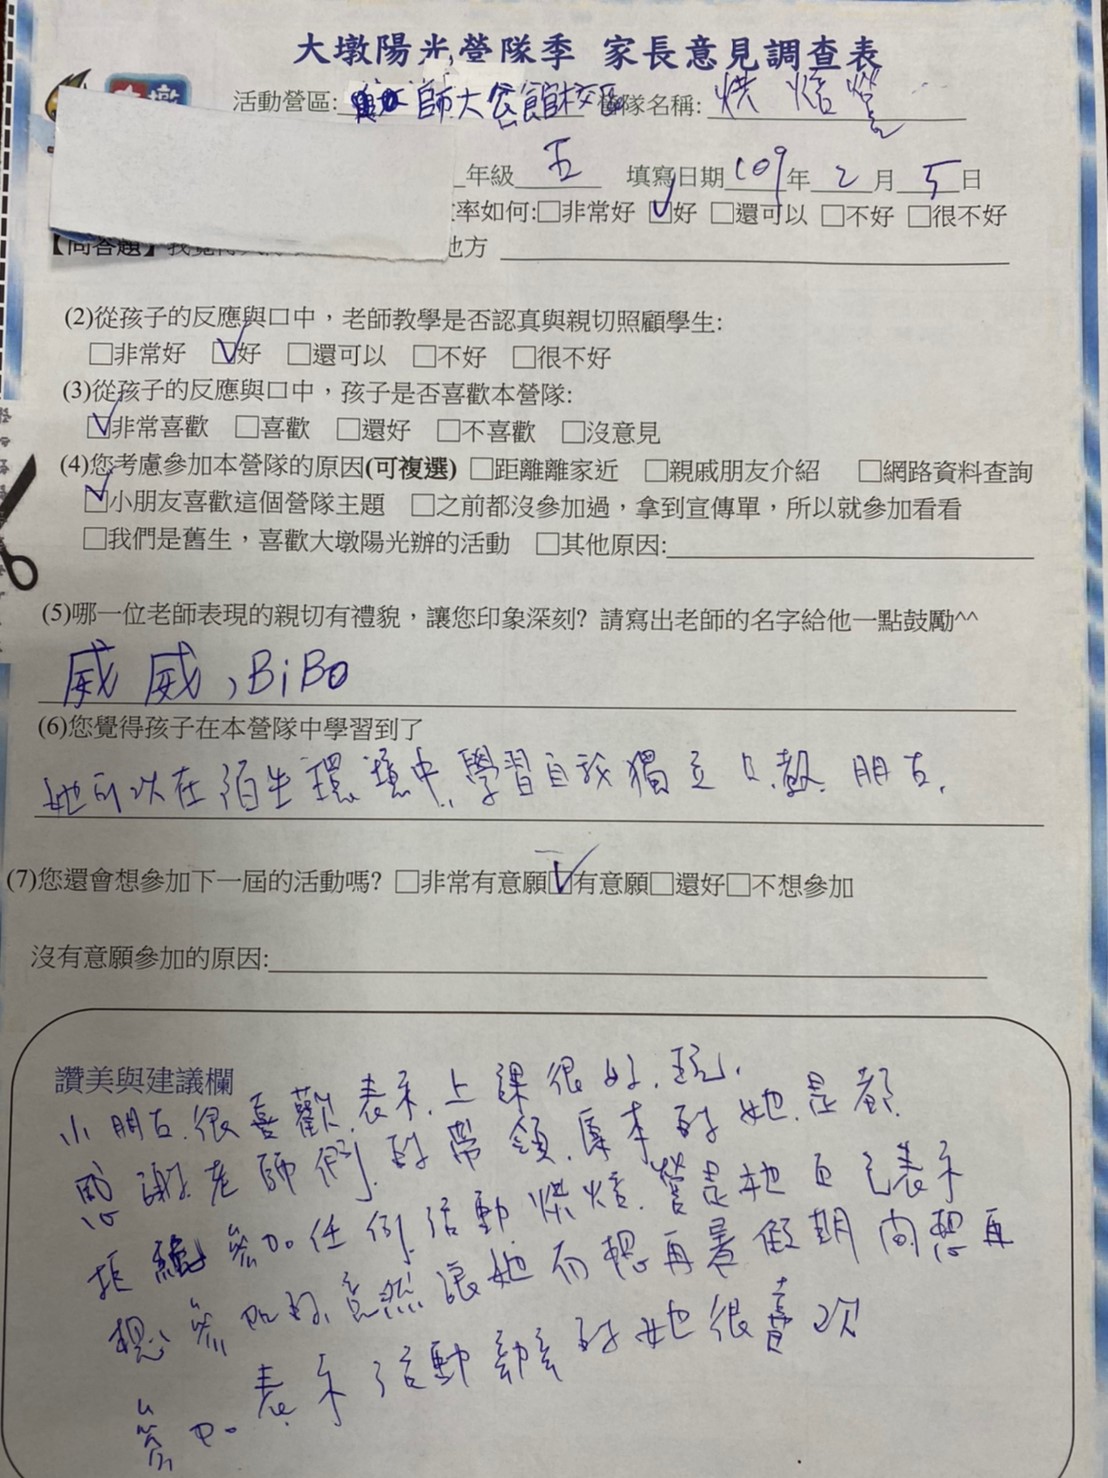 大墩陽光營隊季 家長意見調查表
活動營區: 師大公館校區 隊名稱: 烘焙營
年級 五 填寫日期 109 年 2 月 5 日
率如何:□非常好 ☑好 □還可以 □不好 □很不好
【問答題】我覺得 地方
(2)從孩子的反應與口中，老師教學是否認真與親切照顧學生:
□非常好 ☑好 □還可以 □不好 □很不好
(3)從孩子的反應與口中，孩子是否喜歡本營隊:
☑非常喜歡 □喜歡 □還好 □不喜歡 □沒意見
(4)您考慮參加本營隊的原因(可複選) □距離離家近 □親戚朋友介紹 □網路資料查詢
☑小朋友喜歡這個營隊主題 □之前都沒參加過，拿到宣傳單，所以就參加看看
□我們是舊生，喜歡大墩陽光辦的活動 □其他原因:
(5)哪一位老師表現的親切有禮貌，讓您印象深刻? 請寫出老師的名字給他一點鼓勵^^
威威、BiBo
(6)您覺得孩子在本營隊中學習到了
她可以在陌生環境中,學習自我獨立 朋友.
(7)您還會想參加下一屆的活動嗎? □非常有意願☑有意願□還好□不想參加
沒有意願參加的原因:
讚美與建議欄
小朋友很喜歡.表示.上課很好玩.
感謝老師們的帶領.原本的她.是都
拒絕參加任何活動 烘焙營是她自己表示
想參加的,竟然讓她 想再暑假期間想再
參加.表示活動 的她很喜欢